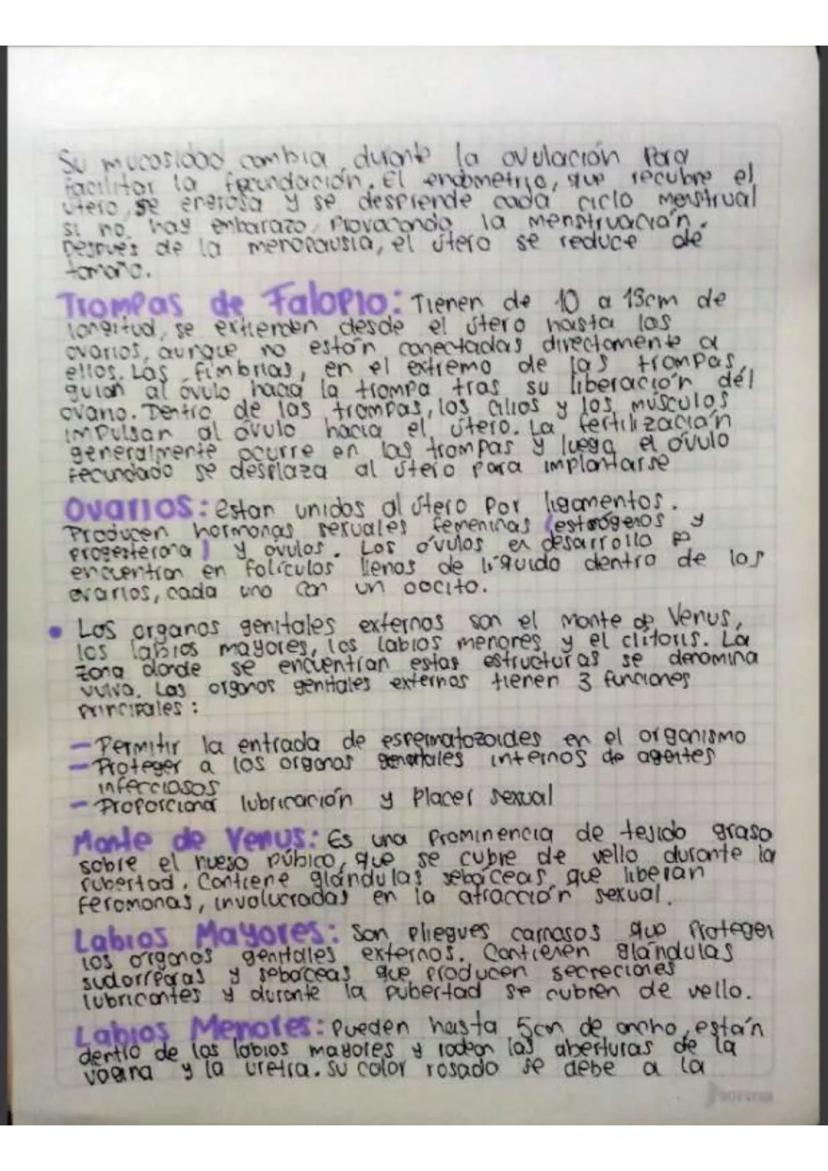 Su mucosidad cambia durante la ovulación para
facilitar la fecundación. El endometrio, que recubre el
útero, se engrosa y se desprende cada ciclo menstrual
si no hay embarazo, provocando la menstruación.
Después de la menopausia, el útero se reduce de
tamaño.
Trompas de Falopio: Tienen de 10 a 13cm de
longitud, se extienden desde el útero hasta los
ovarios, aunque no están conectadas directamente a
ellos. Las fimbrias, en el extremo de las trompas,
guían al óvulo hacia la trompa tras su liberación del
ovario. Dentro de las trompas, los cilios y los músculos
impulsan al óvulo hacia el útero. La fertilización
generalmente ocurre en las trompas y luego el óvulo
fecundado se desplaza al útero para implantarse
Ovarios: Estan unidos al útero por ligamentos.
Producen hormonas sexuales femeninas (estrógenos y
progesterona) y óvulos. Los óvulos en desarrollo se
encuentran en folículos llenos de líquido dentro de los
ovarios, cada uno con un oocito.
• Los organos genitales externos son el monte de Venus,
los labios mayores, los labios menores y el clítoris. La
zona donde se encuentran estas estructuras se denomina
vulva. Los organos genitales externos tienen 3 funciones
principales:
- Permitir la entrada de espermatozoides en el organismo
- Proteger a los organos genitales internos de agentes
infecciosos
- Proporcionar lubricación y placer sexual
Monte de Venus: Es una prominencia de tejido graso
sobre el hueso púbico, que se cubre de vello durante la
pubertad. Contiene glándulas sebáceas que liberan
feromonas, involucradas en la atracción sexual.
Labios Mayores: Son pliegues carnosos que protegen
los órganos genitales externos. Contienen glándulas
sudoríparas y sebáceas que producen secreciones
lubricantes y durante la pubertad se cubren de vello.
Labios Menores: Pueden hasta 5cm de ancho, están
dentro de los labios mayores y rodean las aberturas de la
vagina y la uretra. Su color rosado se debe a la